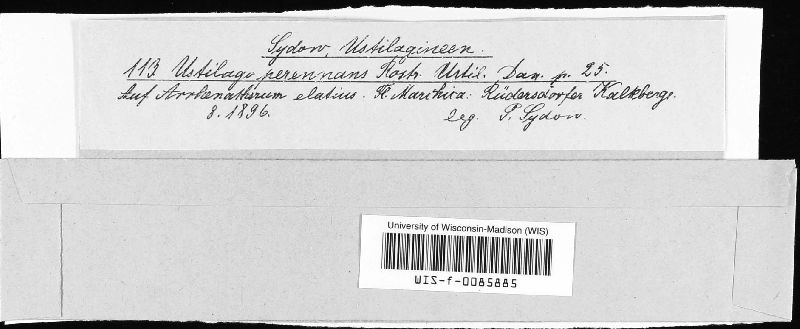 Sydow, Ustilagineen.
113. Ustilago perennans Rostr. Ustil. Dan. p. 25.
Auf Arrhenatherum elatius. Fl. Marchica: Rüdersdorfer Kalkberge.
8. 1896. leg. P. Sydow.
University of Wisconsin-Madison (WIS)
WIS-f-0085885